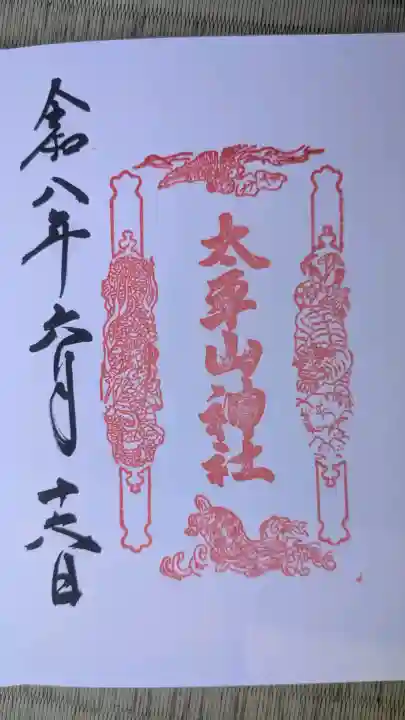 太平山神社
令和八年六月十六日